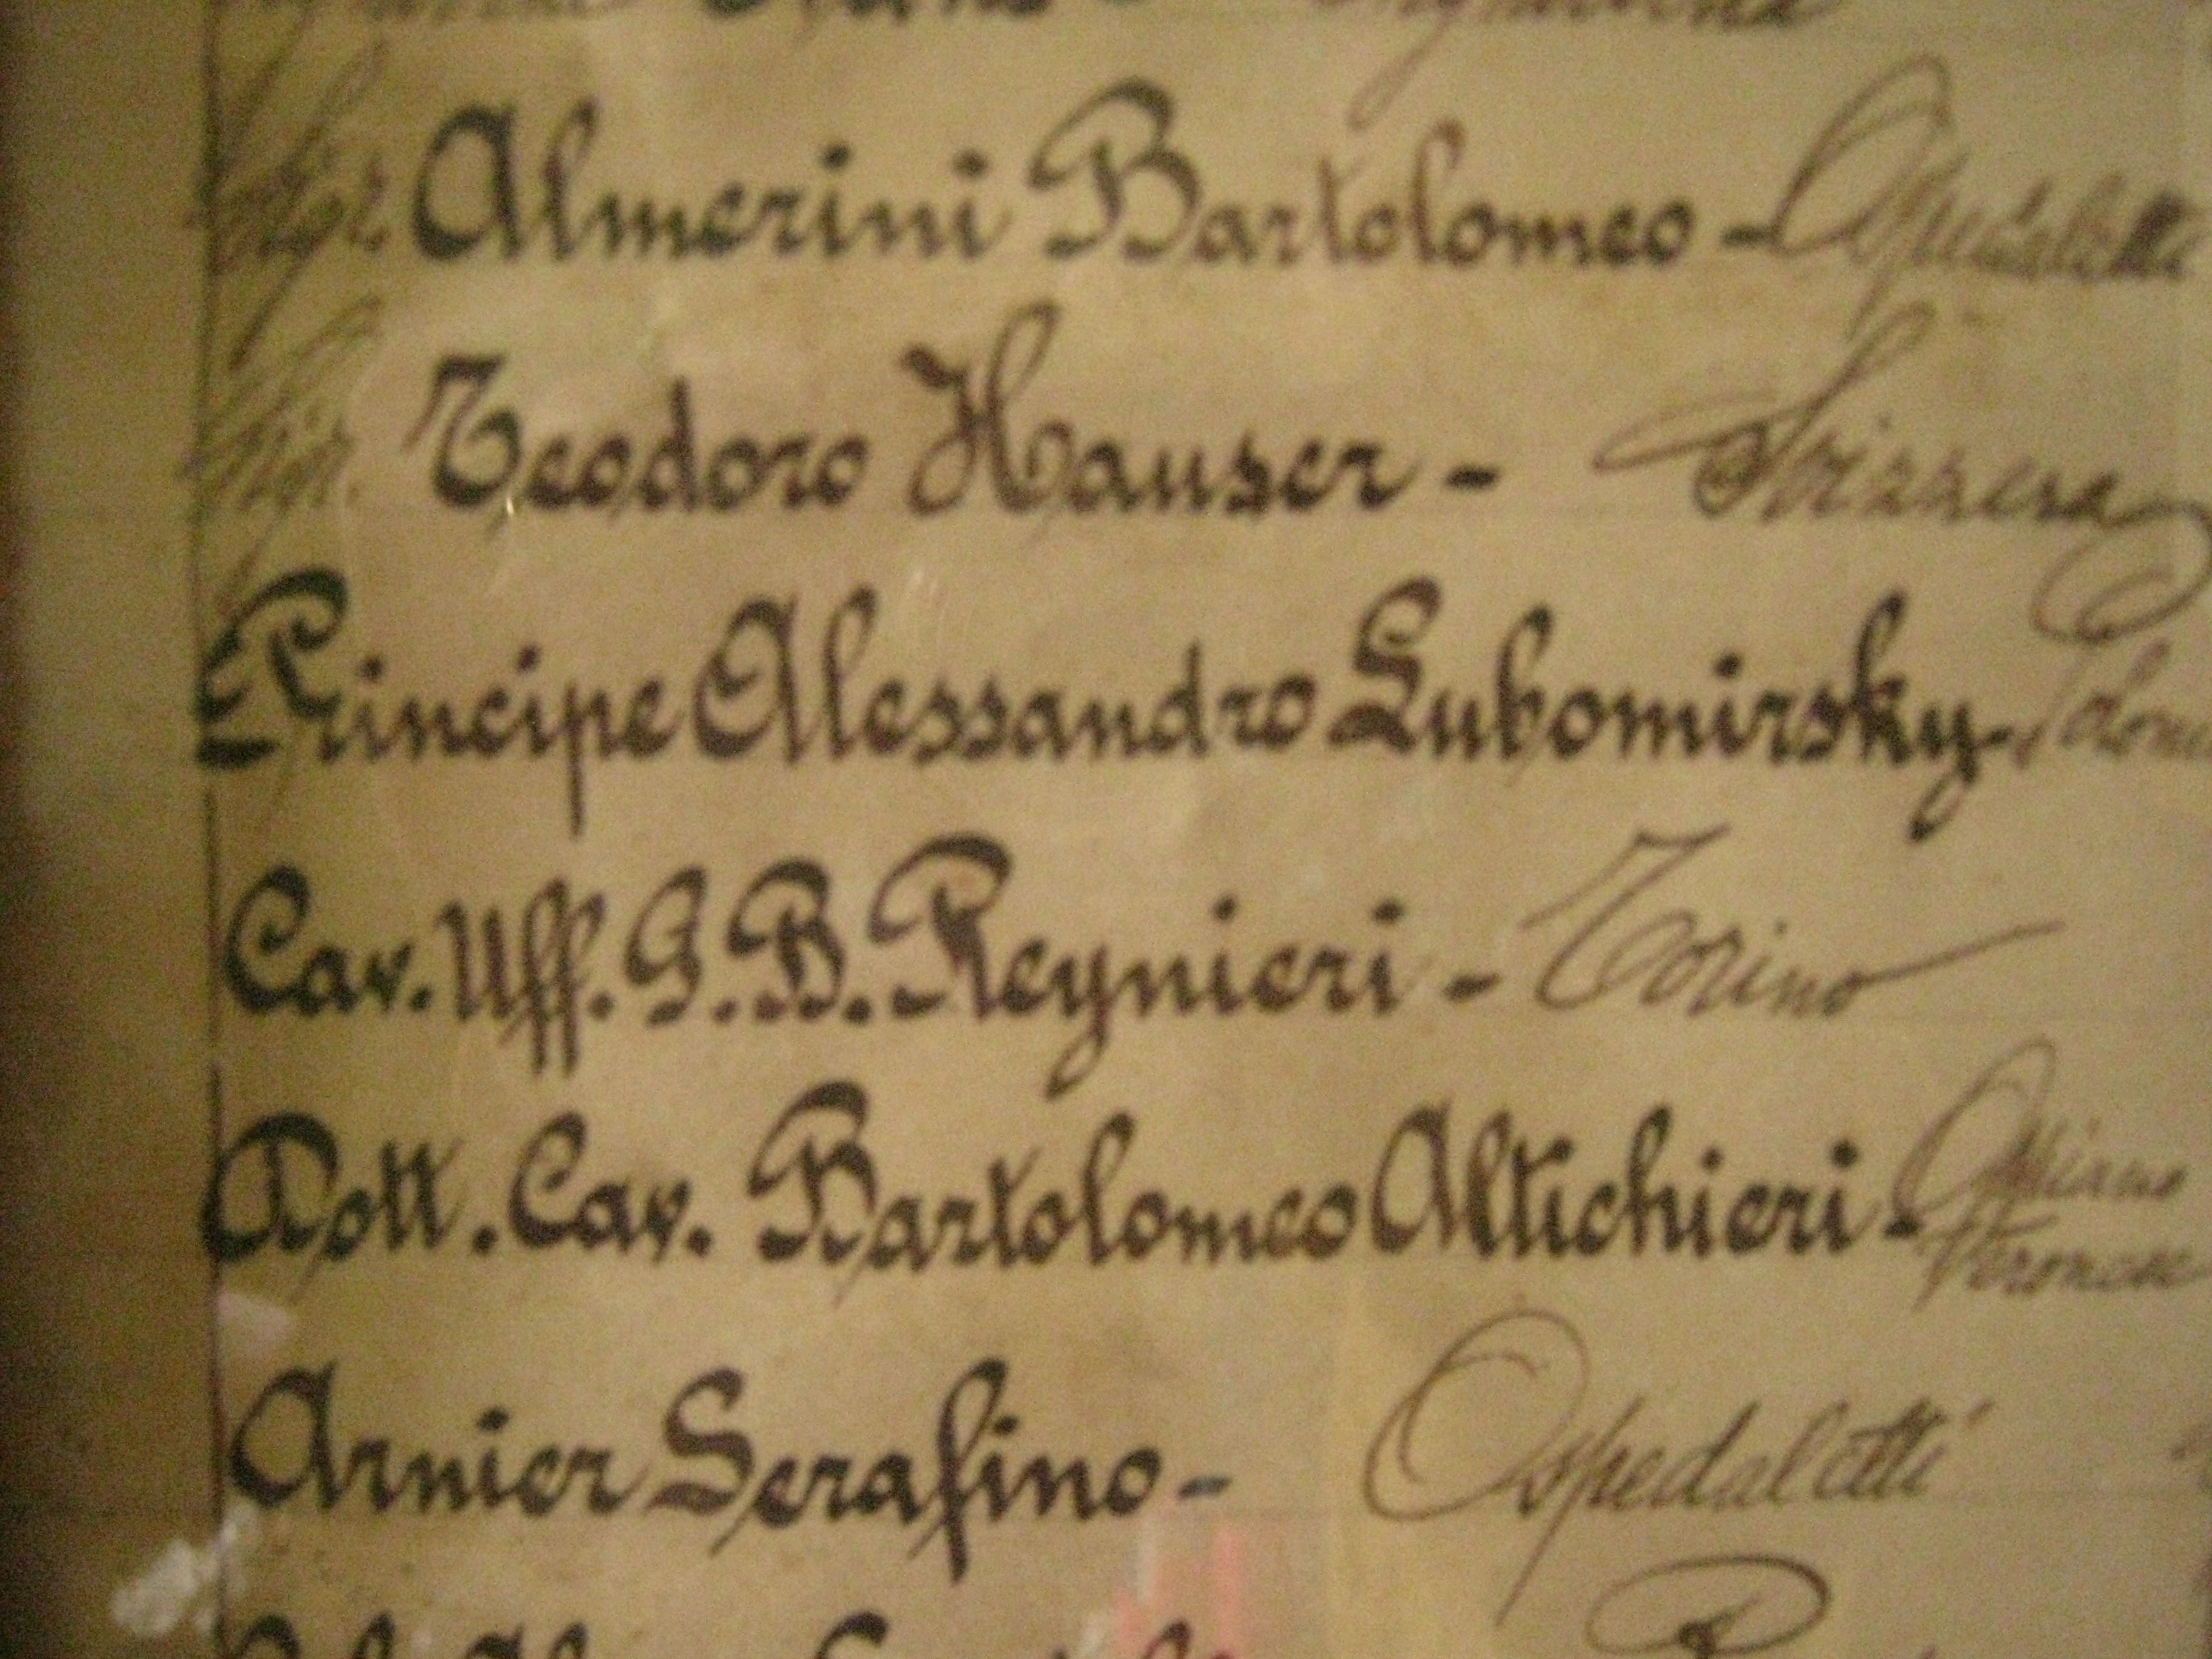 Almerini Bartolomeo - Ospedaletti
Teodoro Hauser - Svizzera
Principe Alessandro Lubomirsky -
Cav. Uff. G. B. Reynieri - Torino
Dott. Cav. Bartolomeo Altichieri - Veronese
Arnier Serafino - Ospedaletti